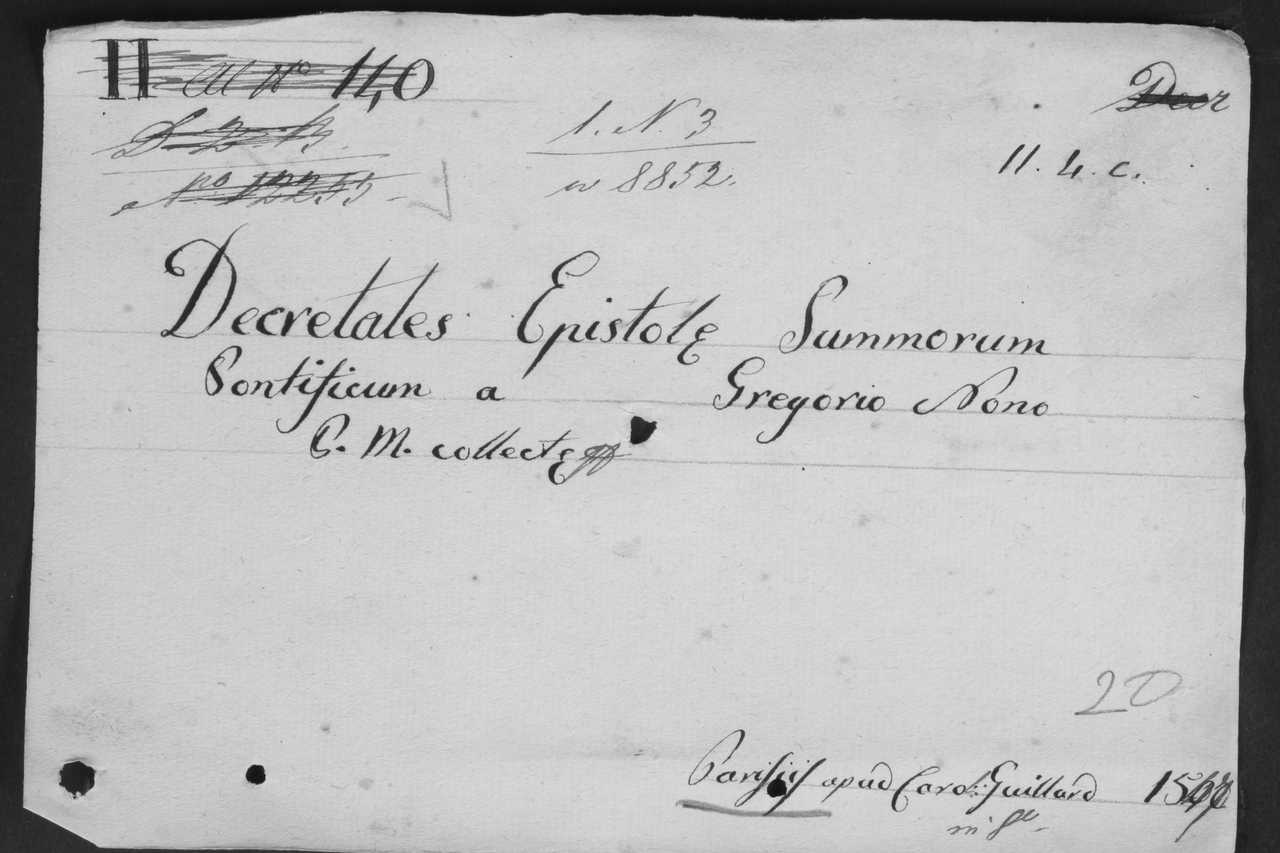 II 140
1. N. 3
8852.
11. 4. c.
Decretales Epistolę Summorum
Pontificum a Gregorio Nono
P. M. collectę
20
Parisiis apud Carol: Guillard
in 8º